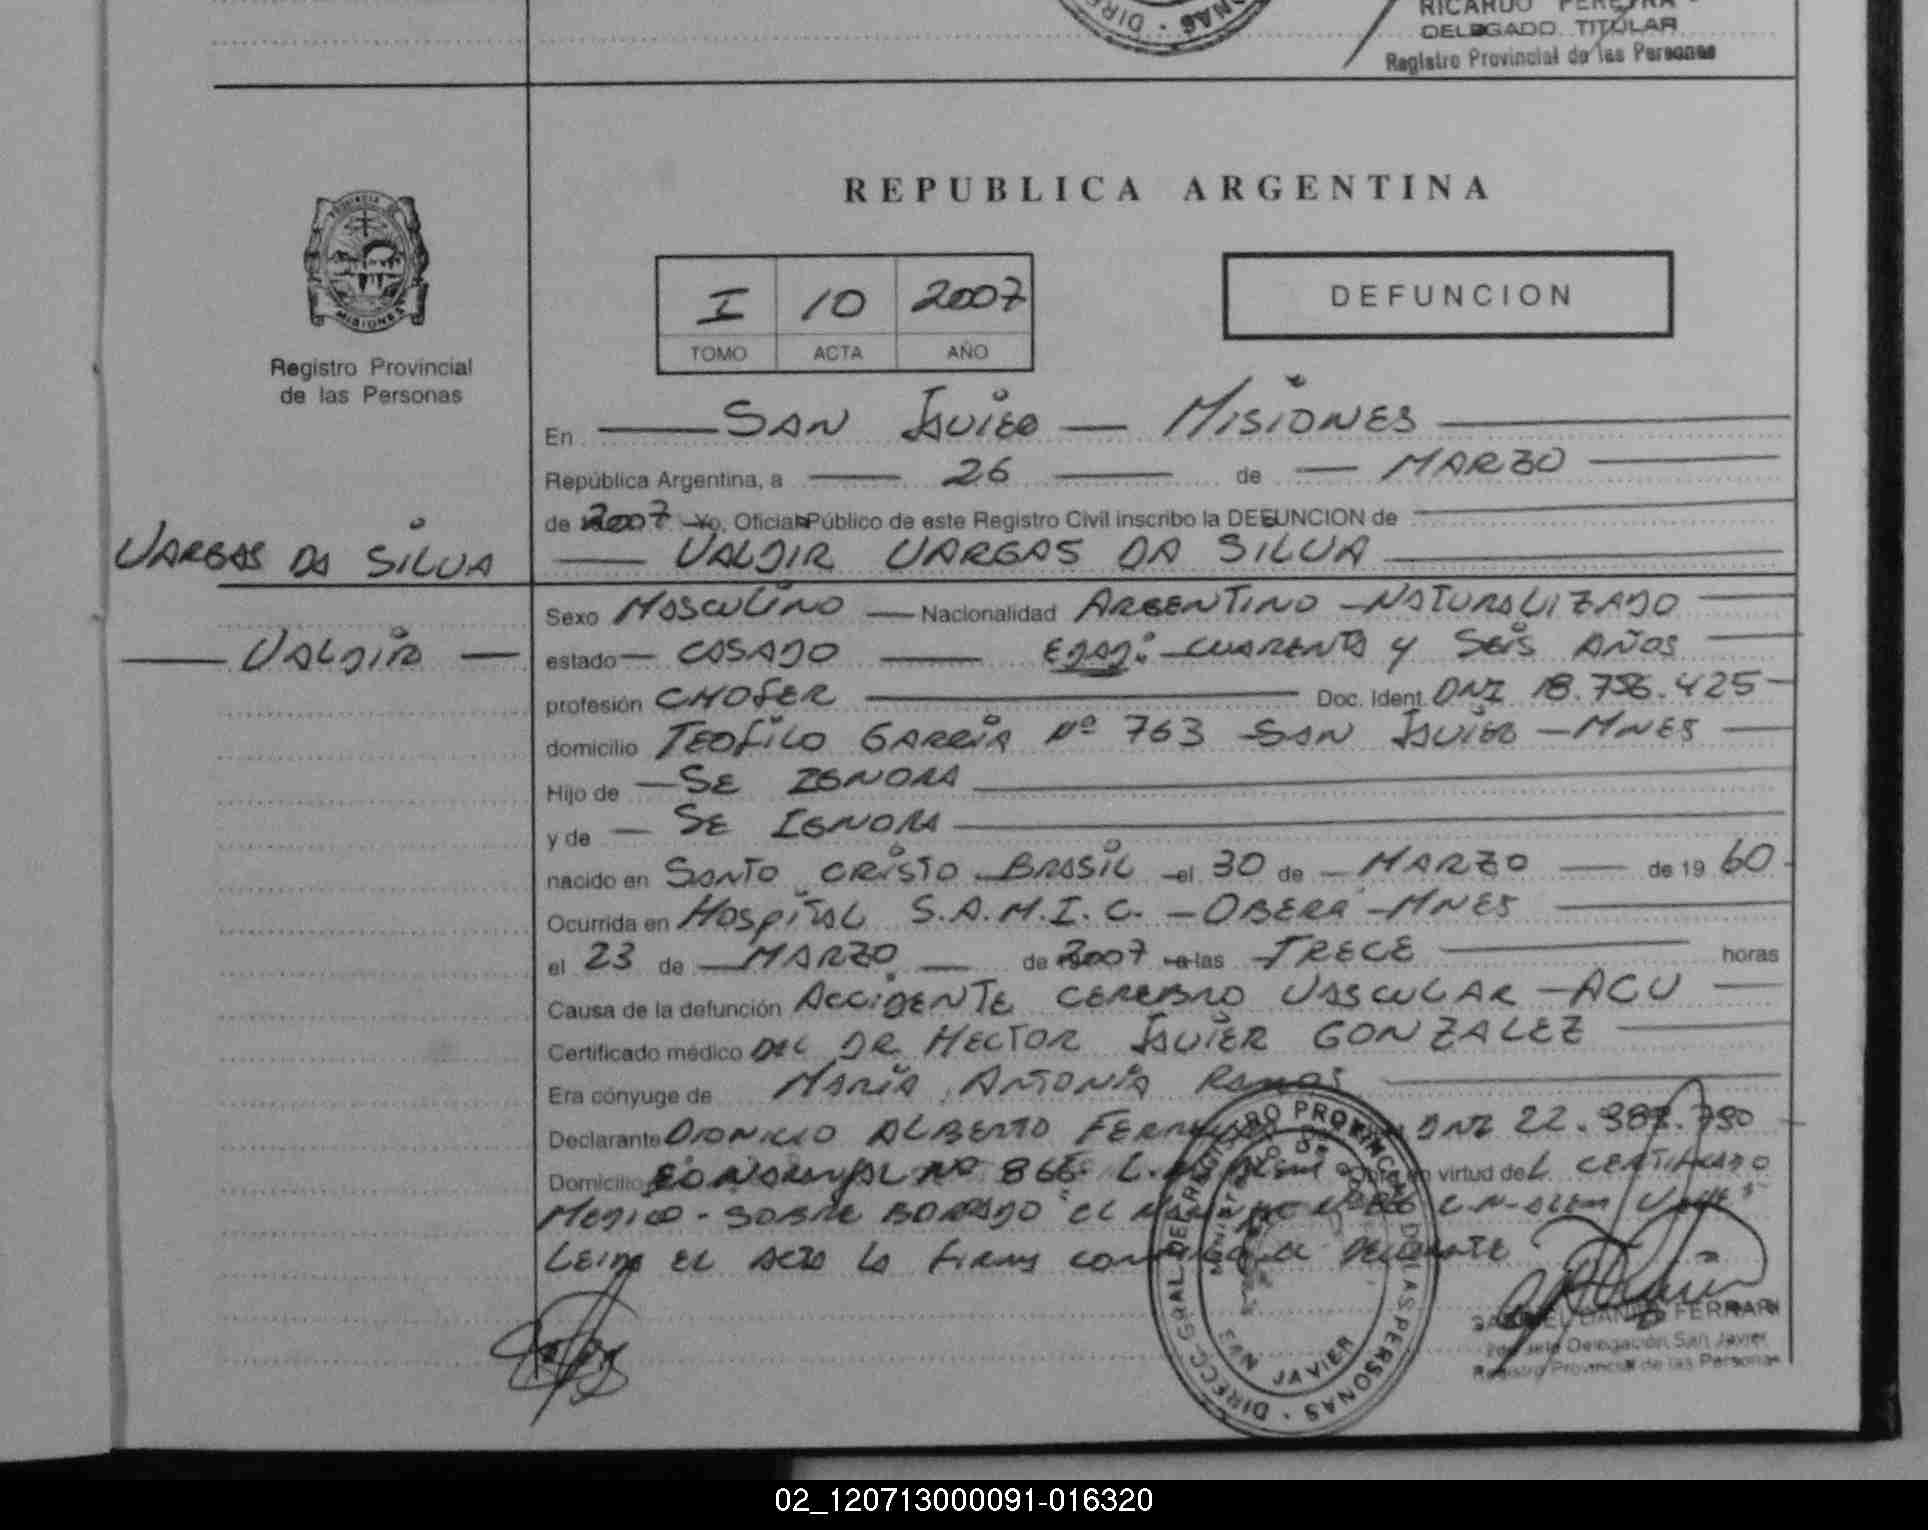 RICARDO PEREYRA
DELEGADO TITULAR
Registro Provincial de las Personas
REPUBLICA ARGENTINA
PROVINCIA DE
MISIONES
Registro Provincial
de las Personas
I 10 2007
TOMO ACTA AÑO
DEFUNCION
En SAN JAVIER — MISIONES
República Argentina, a — 26 — de — MARZO
de 2007 Yo, Oficial Público de este Registro Civil inscribo la DEFUNCION de
VARGAS DA SILVA
VALDIR VARGAS DA SILVA
Sexo MASCULINO — Nacionalidad ARGENTINO - NATURALIZADO
VALDIR
estado — CASADO — EDAD: CUARENTA Y SEIS AÑOS
profesión CHOFER — Doc. Ident. DNI 18.756.425
domicilio TEOFILO GARCIA Nº 763 SAN JAVIER - MNES
Hijo de — SE IGNORA
y de — SE IGNORA
nacido en SANTO CRISTO - BRASIL el 30 de — MARZO — de 19 60
Ocurrida en HOSPITAL S.A.M.I.C. - OBERÁ - MNES
el 23 de — MARZO — de 2007 a las TRECE horas
Causa de la defunción ACCIDENTE CEREBRO VASCULAR - ACV
Certificado médico DEL DR HECTOR JAVIER GONZALEZ
Era cónyuge de MARIA ANTONIA RAMOS
Declarante DIONICIO ALBERTO DNI 22.387.790
Domicilio Nº 866 virtud del CERTIFICADO
MEDICO - SOBRE BORRADO "EL Nº 866 L.N-ALEM VALE"
LEIDA EL ACTA LA FIRMA EL DECLARANTE
DIRECC. GRAL. DEL REGISTRO PROVINCIAL DE LAS PERSONAS
SAN JAVIER
DANIEL FERRARI
2do Jefe Delegación San Javier
Registro Provincial de las Personas
02_120713000091-016320